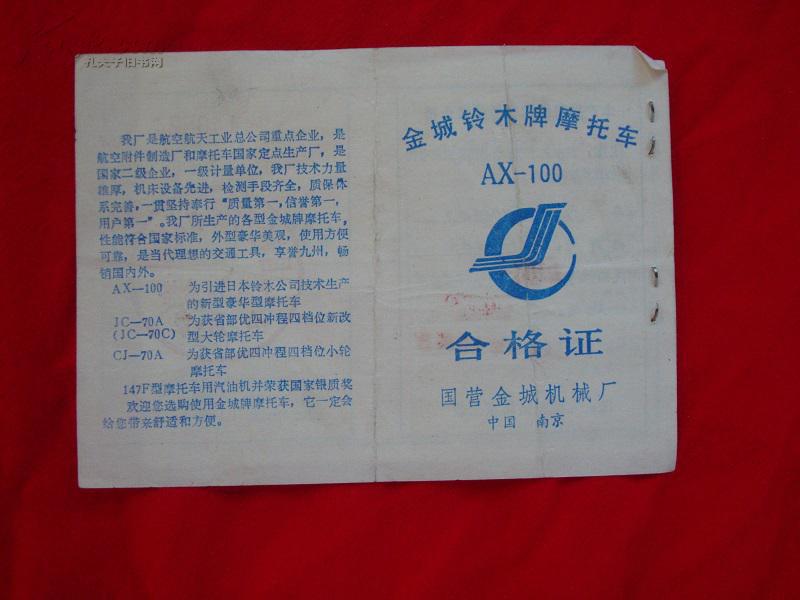 孔夫子旧书网
我厂是航空航天工业总公司重点企业，是
航空附件制造厂和摩托车国家定点生产厂，是
国家二级企业，一级计量单位，我厂技术力量
雄厚，机床设备先进，检测手段齐全，质保体
系完善，一贯坚持奉行“质量第一，信誉第一，
用户第一”。我厂所生产的各型金城牌摩托车，
性能符合国家标准，外型豪华美观，使用方便
可靠，是当代理想的交通工具，享誉九州，畅
销国内外。
AX—100 为引进日本铃木公司技术生产
的新型豪华型摩托车
JC—70A 为获省部优四冲程四档位新改
(JC—70C) 型大轮摩托车
CJ—70A 为获省部优四冲程四档位小轮
摩托车
147F型摩托车用汽油机并荣获国家银质奖
欢迎您选购使用金城牌摩托车，它一定会
给您带来舒适和方便。
金城铃木牌摩托车
AX-100
合格证
国营金城机械厂
中国 南京